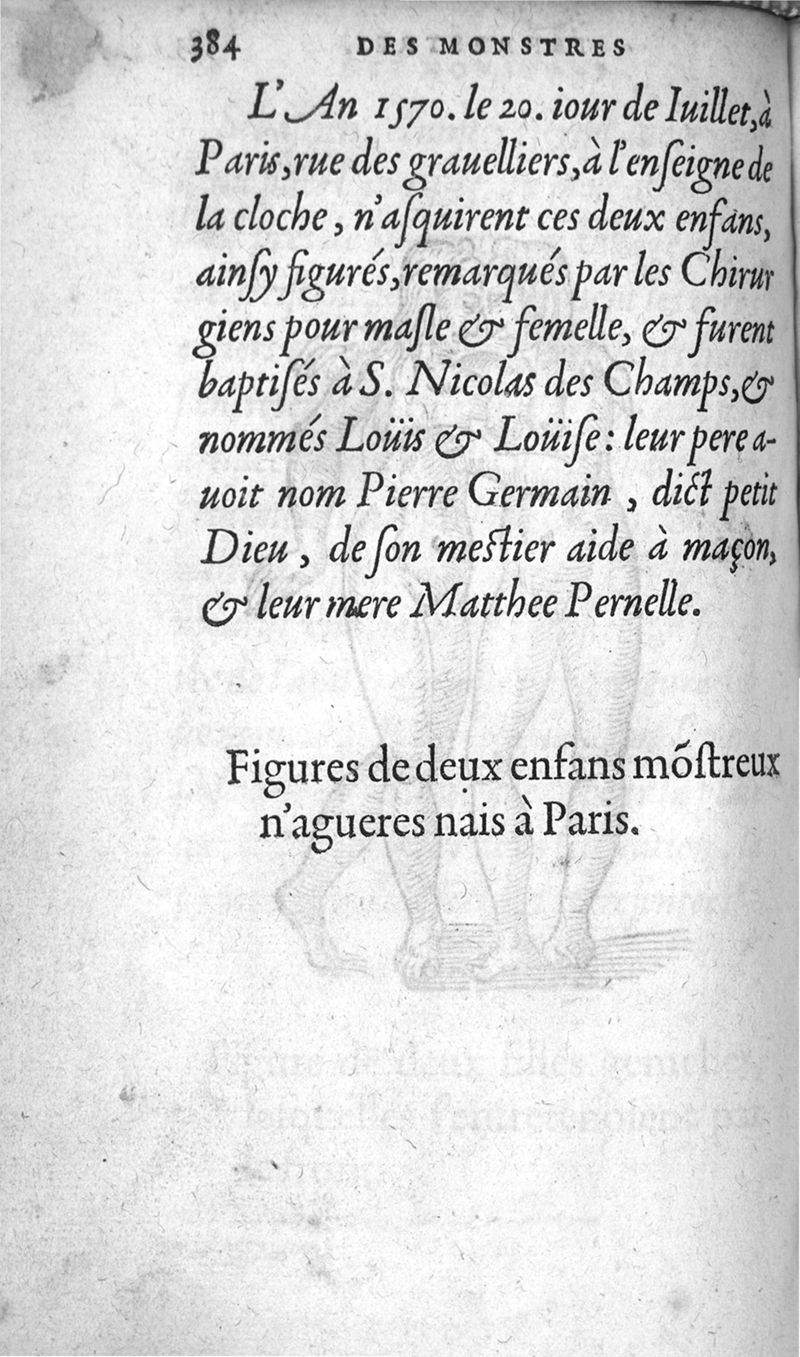 384 DES MONSTRES
L'An 1570. le 20. iour de Iuillet, à
Paris, rue des grauelliers, à l'enſeigne de
la cloche, n'aſquirent ces deux enfans,
ainſy figurés, remarqués par les Chirur
giens pour maſle & femelle, & furent
baptiſés à S. Nicolas des Champs, &
nommés Loüis & Loüiſe: leur pere a-
uoit nom Pierre Germain, dict petit
Dieu, de ſon meſtier aide à maçon,
& leur mere Matthee Pernelle.
Figures de deux enfans mõſtreux
n'agueres nais à Paris.